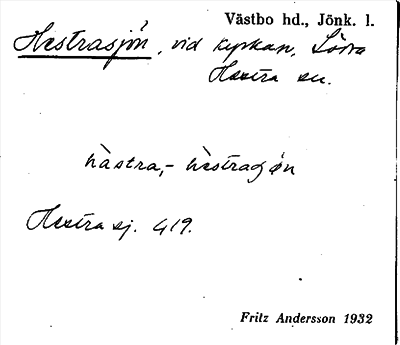 Västbo hd., Jönk. l.
Hestrasjön, vid kyrkan, Södra
Hestra sn.
hàstra,- hèstragøn
Hestra sj. 419.
Fritz Andersson 1932